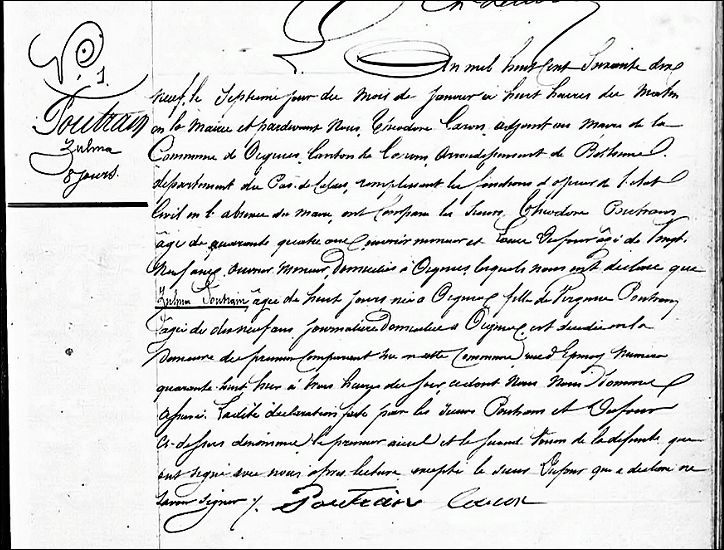 N° 1
Poutrain
Zulma
8 jours.
An mil huit cent soixante dix
neuf, le Septième jour du mois de Janvier à huit heures du matin
en la Mairie et pardevant Nous, Théodore Caron, adjoint au Maire de la
Commune d'Oignies, Canton de Carvin, Arrondissement de Béthune.
département du Pas-de-Calais, remplissant les fonctions d'officier de l'état
Civil en l'absence du maire, ont comparu les sieurs Théodore Poutrain
âgé de quarante quatre ans ouvrier mineur et Dufour âgé de vingt
neuf ans, ouvrier mineur, domiciliés à Oignies, lesquels nous ont déclaré que
Zulma Poutrain âgée de huit jours née à Oignies fille de Virginie Poutrain
âgée de dix neuf ans journalière domiciliée à Oignies, est décédée en la
demeure du premier comparant sise en cette Commune, rue d'Epinoy numéro
quarante huit hier à trois heures du soir, ce dont Nous Nous sommes
assuré. Ladite déclaration faite par les sieurs Poutrain et Dufour
ci-dessus dénommés, le premier aïeul et le second voisin de la défunte qui
ont signé avec nous après lecture, excepté le sieur Dufour qui a déclaré ne
savoir signer ./. Poutrain Caron